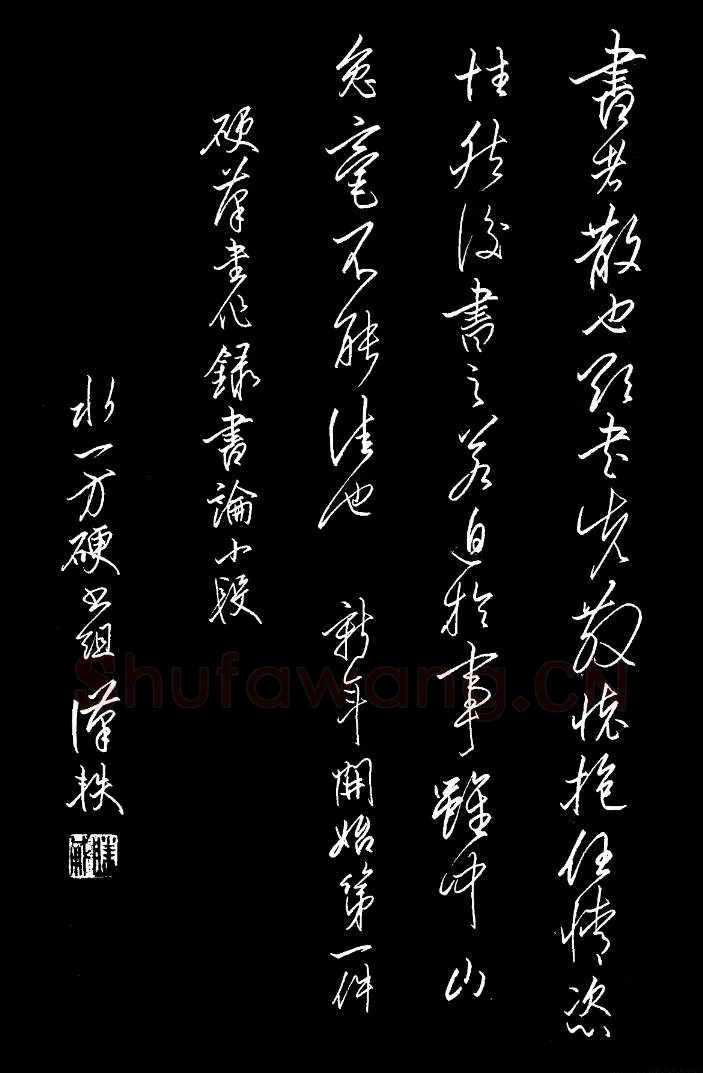 書者散也欲書先散懷抱任情恣
性然後書之若迫於事雖中山
兔毫不能佳也 新年開始第一件
硬筆書作錄書論小段
水一方硬书組 漢軼
Shufawang.CN